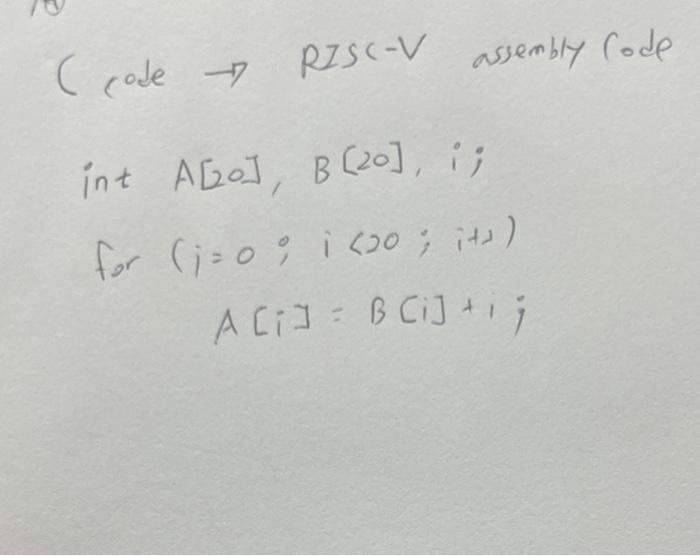 C code → RISC-V assembly Code
int A[20], B[20], i;
for (i=0; i<20; i++)
A[i] = B[i] + i;